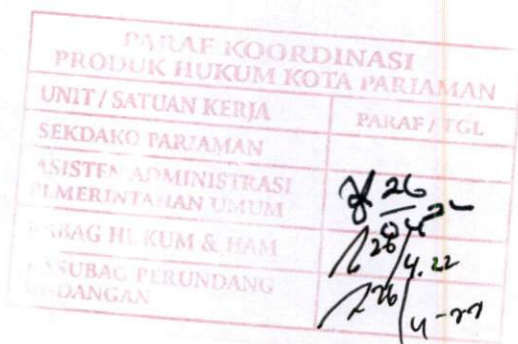 PARAF KOORDINASI
PRODUK HUKUM KOTA PARIAMAN
UNIT / SATUAN KERJA PARAF / TGL
SEKDAKO PARIAMAN
ASISTEN ADMINISTRASI
PEMERINTAHAN UMUM 26
KABAG HUKUM & HAM 26/4.22
KASUBAG PERUNDANG
UNDANGAN 26/4-22